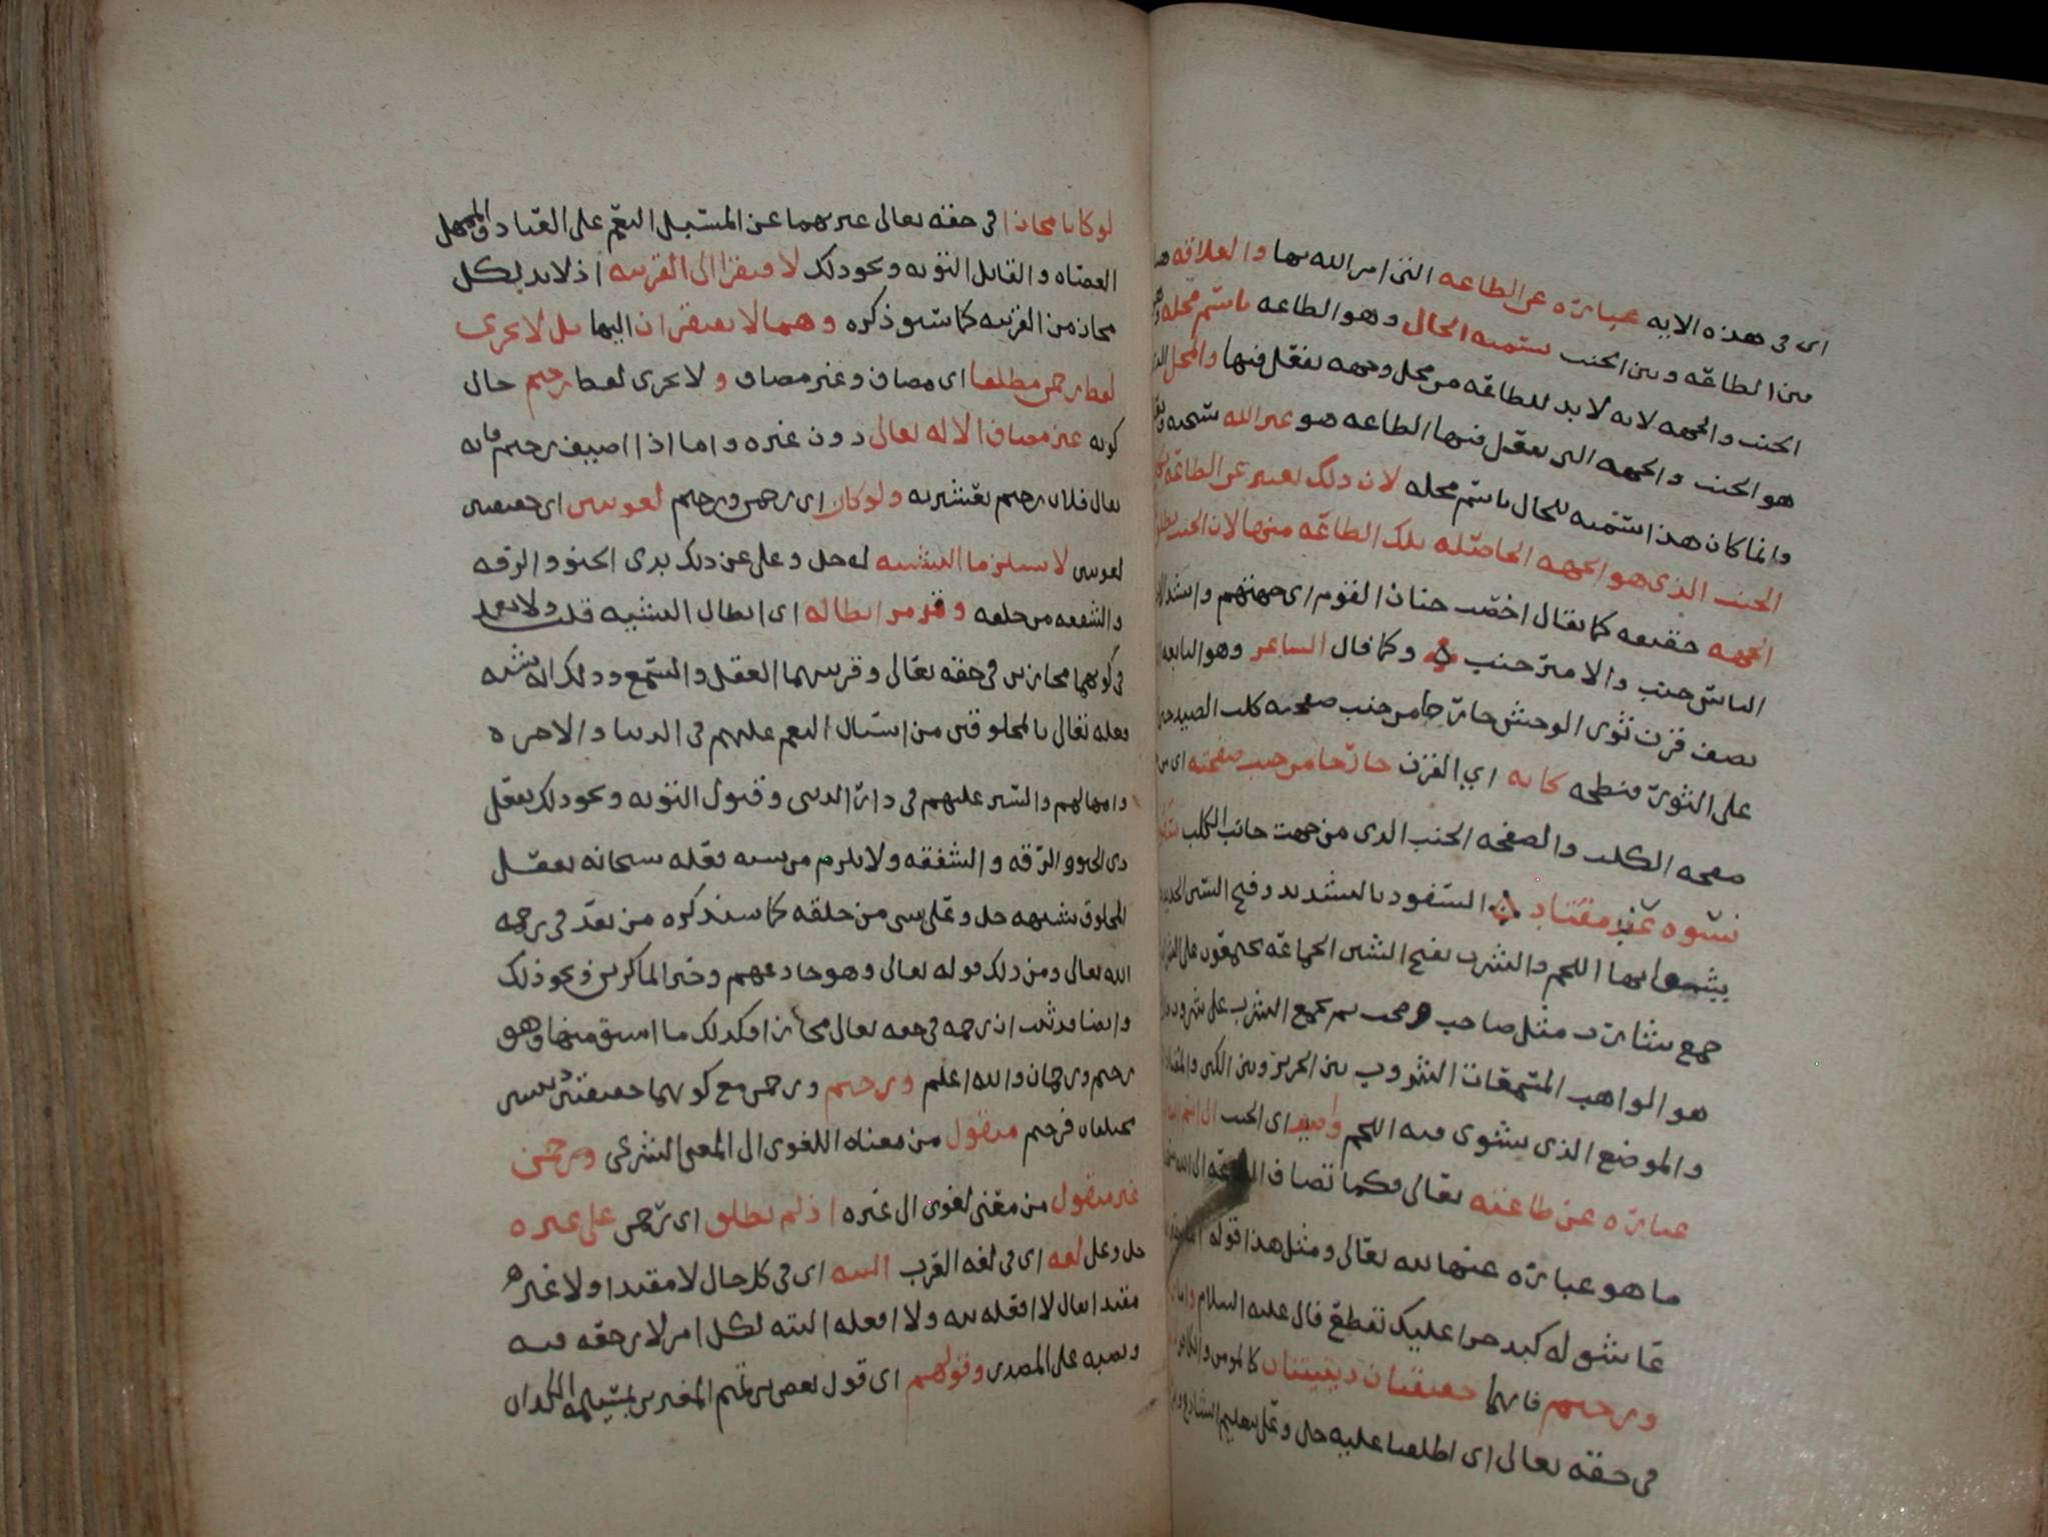 اى فى هذه الايه عباره عن الطاعه التى امر الله بها والعلاقه
بين الطاعه وبين الجنب تسميه الحال وهو الطاعه باسم محله
الجنب والجهه لانه لا بد للطاعه من محل وجهه تفعل فيها والمحل
هو الجنب والجهه التى تفعل فيها الطاعه هو عبر الله سبحانه
وانما كان هذا تسميه للحال باسم محله لان ذلك تعبير عن الطاعه
الجنب الذى هو الجهه الحاصله تلك الطاعه منها لان الجنب
الجهه حقيقه كما يقال اخصب جناب القوم اى جهتهم
الناس جنب والامير جنب وكما قال الشاعر وهو النابغه
يصف قرن ثور الوحش خارجا من جنب صفحته كلب الصيد
على الثور فنطحه كانه اي القرن خارجا من جنب صفحته
صفحه الكلب والصفحه الجنب الذى من جهت جانب الكلب
نسوه عند مفتاد السفود بالتشديد وفتح السين
بها اللحم والشرب بفتح الشين الجماعه يجتمعون على
جمع شارب مثل صاحب وصحب ثم يجمع الشرب على شروب
هو الواهب المسمعات الشروب بين الحرير وبين الكتن
والموضع الذى يشوى فيه اللحم واضيف اى الجنب
عباره عن طاعته تعالى فكما تضاف الطاعه الى الله
ما هو عباره عنها لله تعالى ومثل هذا قوله
عاشق له كبد حرا عليك تقطع قال عليه السلام
ورحيم فانهما حقيقتان دينيتان كالمومن
فى حقه تعالى اى اطلقا عليه جل وعلى بتعليم الشارع
لو كانا مجازا فى حقه تعالى عبر بهما عن المسبل النعم على العباد والممهل
العصاه والقابل التوبه ونحو ذلك لافتقرا الى القرينه اذ لا بد لكل
مجاز من القرينه كما سبق ذكره وهما لا يفتقران اليها بل لا يجرى
لفظ رحمن مطلقا اى مضاف وغير مضاف و لا يجرى لفظ رحيم حال
كونه غير مضاف الا له تعالى دون غيره واما اذا اضيف رحيم فانه
يقال فلان رحيم بعشيرته ولو كان اى رحمن ورحيم لغويين اى حقيقتين
لغويين لاستلزما التشبيه له جل وعلى عن ذلك بذى الحنو والرقه
والشفقه من خلقه وقد مر ابطاله اى ابطال التشبيه قلت ولا بعد
فى كونهما مجازين فى حقه تعالى وقرينتهما العقل والسمع وذلك انه شبه
فعله تعالى بالمخلوقين من اسبال النعم عليهم فى الدنيا والاخره
وامهالهم والستر عليهم فى دار الدنيا وقبول التوبه ونحو ذلك بفعل
ذى الحنو والرقه والشفقه ولا يلزم من تشبيه فعله سبحانه بفعل
المخلوق تشبيهه جل وعلى بشى من خلقه كما سنذكره من بعد فى رحمه
الله تعالى ومن ذلك قوله تعالى وهو خادعهم وخير الماكرين ونحو ذلك
وايضا قد ثبت ان رحمه فى حقه تعالى مجازا فكذلك ما اشتق منها وهو
رحيم ورحمان والله اعلم ورحيم ورحمن مع كونهما حقيقتين دينيتين
مختلفان فرحيم منقول من معناه اللغوى الى المعنى الشرعى ورحمن
غير منقول من معنى لغوى الى غيره اذ لم يطلق اى رحمن على غيره
جل وعلى لغه اى فى لغه العرب البته اى فى كل حال لا مقيدا ولا غير
مقيد ايقال لا افعله بته ولا افعله البته لكل امر لا رجعه فيه
ونصبه على المصدر وقولهم اى قول بعض بنى تميم المغترين بمسيلمه الكذاب